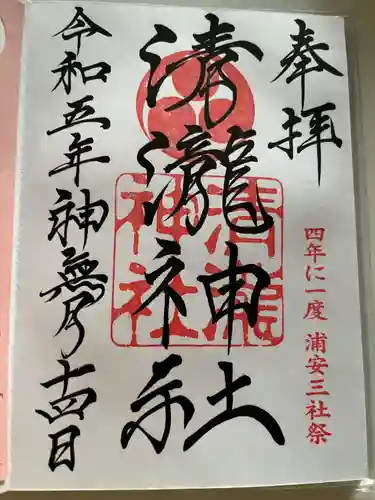 奉拝
四年に一度 浦安三社祭
清瀧神社
清瀧神社
令和五年神無月十四日